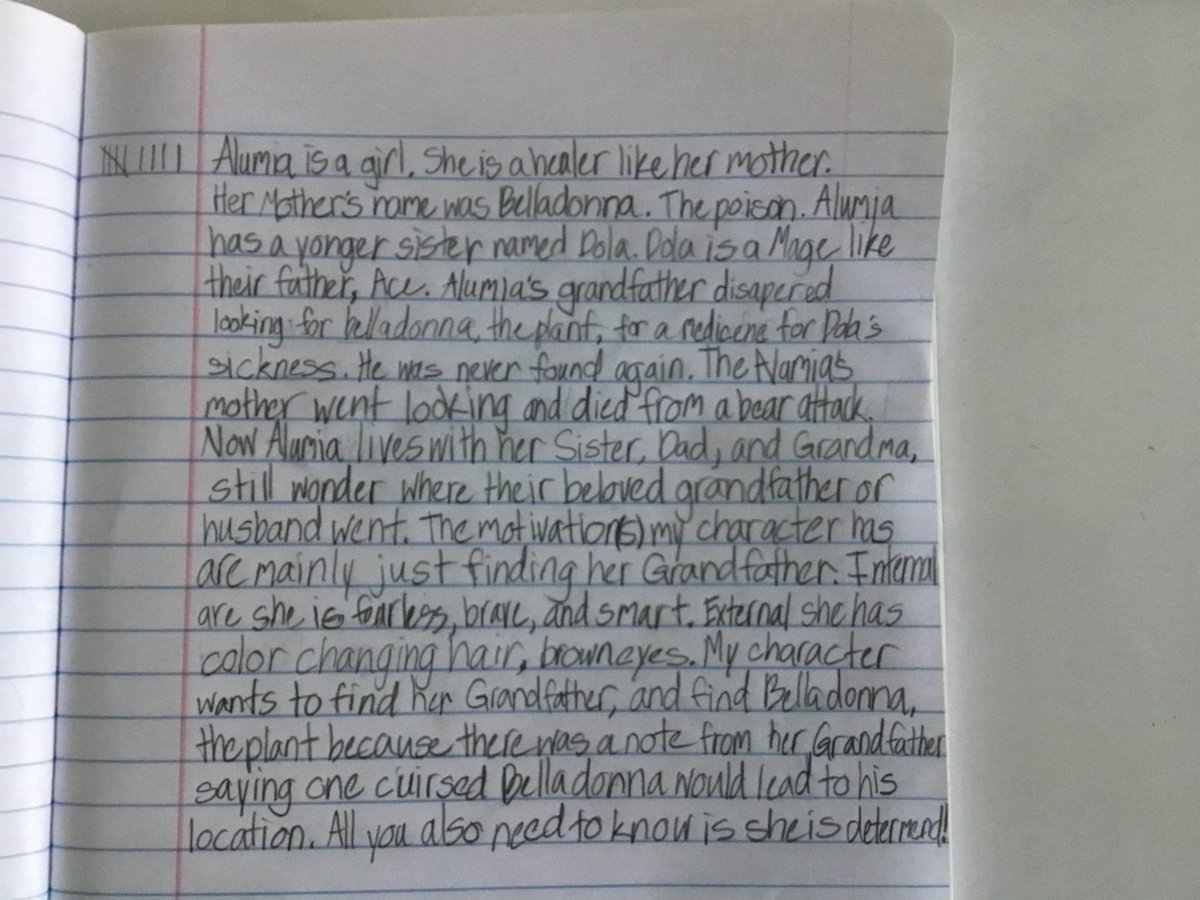 Alumia is a girl. She is a healer like her mother.
Her Mother's name was Belladonna. The poison. Alumia
has a yonger sister named Dola. Dola is a Mage like
their father, Ace. Alumia's grandfather disapered
looking for belladonna, the plant, for a medicene for Dola's
sickness. He was never found again. The Alamia's
mother went looking and died from a bear attack.
Now Alumia lives with her Sister, Dad, and Grandma,
still wonder where their beloved grandfather or
husband went. The motivation(s) my character has
are mainly just finding her Grandfather. Internal
are she is fearless, brave, and smart. External she has
color changing hair, brown eyes. My character
wants to find her Grandfather, and find Belladonna,
the plant because there was a note from her Grandfather
saying one cuirsed Belladonna would lead to his
location. All you also need to know is she is determend!